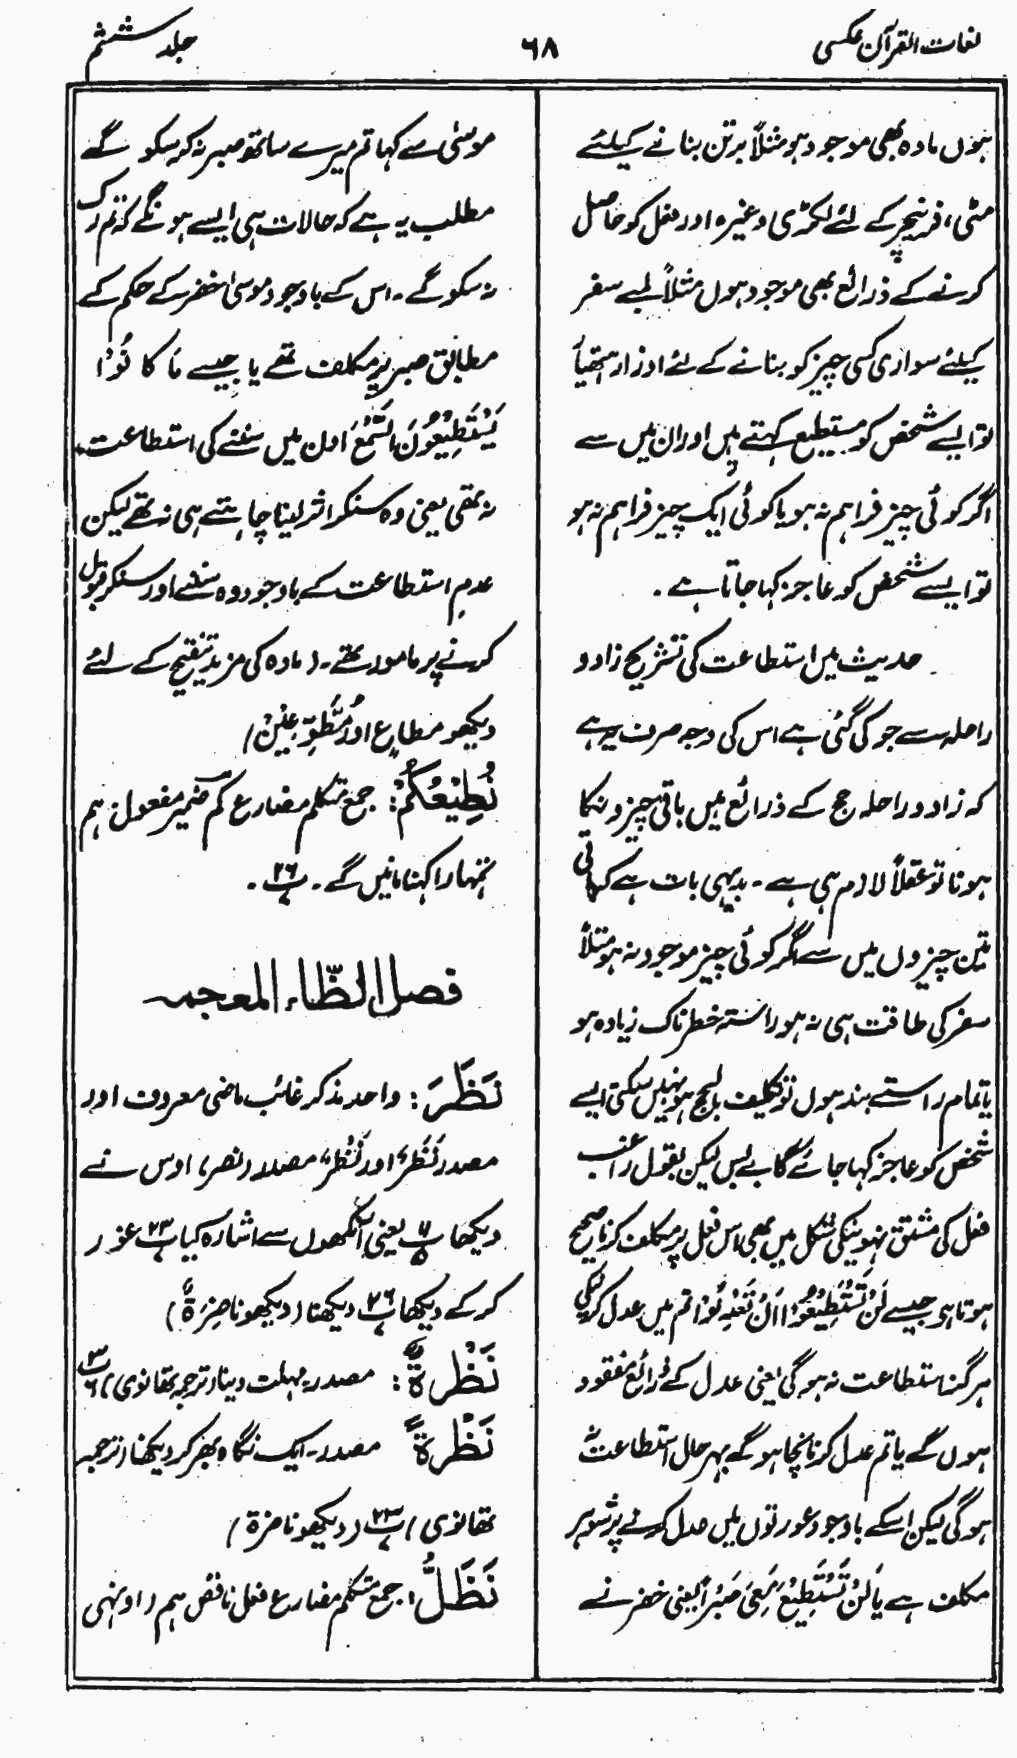 لغات القرآن عکسی
۶۸
جلد ششم
ہوں مادہ بھی موجود ہو مثلاً برتن بنانے کیلئے
مٹی، فرنیچر کے لئے لکڑی وغیرہ اور فعل کو حاصل
کرنے کے ذرائع بھی موجود ہوں مثلاً لمبے سفر
کیلئے سواری کسی چیز کو بنانے کے لئے اوزار ہتھیار
تو ایسے شخص کو مستطیع کہتے ہیں اور ان میں سے
اگر کوئی چیز فراہم نہ ہو یا کوئی ایک چیز فراہم نہ ہو
تو ایسے شخص کو عاجز کہا جاتا ہے ۔
حدیث میں استطاعت کی تشریح زاد و
راحلہ سے جو کی گئی ہے اس کی وجہ صرف یہ ہے
کہ زاد و راحلہ حج کے ذرائع ہیں باقی چیزونکا
ہونا تو عقلاً لازم ہی ہے ۔ بدیہی بات ہے کہ باقی
تین چیزوں میں سے اگر کوئی چیز موجود نہ ہو مثلاً
سفر کی طاقت ہی نہ ہو راستہ خطرناک زیادہ ہو
یا تمام راستے بند ہوں تو تکلیف بالحج ہو نہیں سکتی ایسے
شخص کو عاجز کہا جائے گا بے بس لیکن بقول راغب
فعل کی مشتق نہونیکی شکل میں بھی اس فعل پر مکلف کرنا صحیح
ہوتا ہی جیسے لَنْ تَسْتَطِیْعُوْا اَنْ تَعْدِلُوْا تم میں عدل کرنیکی
ہرگز استطاعت نہ ہوگی یعنی عدل کے ذرائع مفقود
ہوں گے یا تم عدل کرنا نچاہو گے بہر حال استطاعت نہ
ہوگی لیکن اسکے باوجود عورتوں میں عدل کرنے پر شوہر
مکلف ہے یا لَنْ تَسْتَطِیْعَ مَعِیَ صَبْرًا یعنی خضر نے
موسیٰ سے کہا تم میرے ساتھ صبر نہ کر سکو گے
مطلب یہ ہے کہ حالات ہی ایسے ہونگے کہ تم رک
نہ سکو گے ۔ اس کے باوجود موسیٰ خضر کے حکم کے
مطابق صبر پر مکلف تھے یا جیسے مَا کَانُوْا
یَسْتَطِیْعُوْنَ السَّمْعَ اون میں سننے کی استطاعت
نہ تھی یعنی وہ سنکر اثر لینا چاہتے ہی نہ تھے لیکن
عدم استطاعت کے باوجود وہ سننے اور سنکر قبول
کرنے پر مامور تھے ۔ (مادہ کی مزید تنقیح کے لئے
دیکھو مطاع اور مُطَّوِّعِیْنَ)
نُطِیْعُکُمْ: جمع متکلم مضارع کم ضمیر مفعول ہم
تمہارا کہنا مانیں گے ۔ پ۲۶ ۔
فصل الظّاء المعجمہ
نَظَرَ: واحد مذکر غائب ماضی معروف اور
مصدر نَظَرٌ اور نَظْرٌ مصدر (نصر) اوس نے
دیکھا یعنی آنکھوں سے اشارہ کیا پ۲۳ غور
کرکے دیکھا پ۲۶ دیکھنا (دیکھو ناضِرَۃٌ)
نَظْرَۃٌ: مصدر۔ مہلت دینا (ترجمہ تھانوی)
نَظْرَۃً مصدر۔ ایک نگاہ بھر کر دیکھنا (ترجمہ
تھانوی) پ۲۳ (دیکھو ناضرۃ)
نَظَلُّ: جمع متکلم مضارع فعل ناقص ہم (اونہی